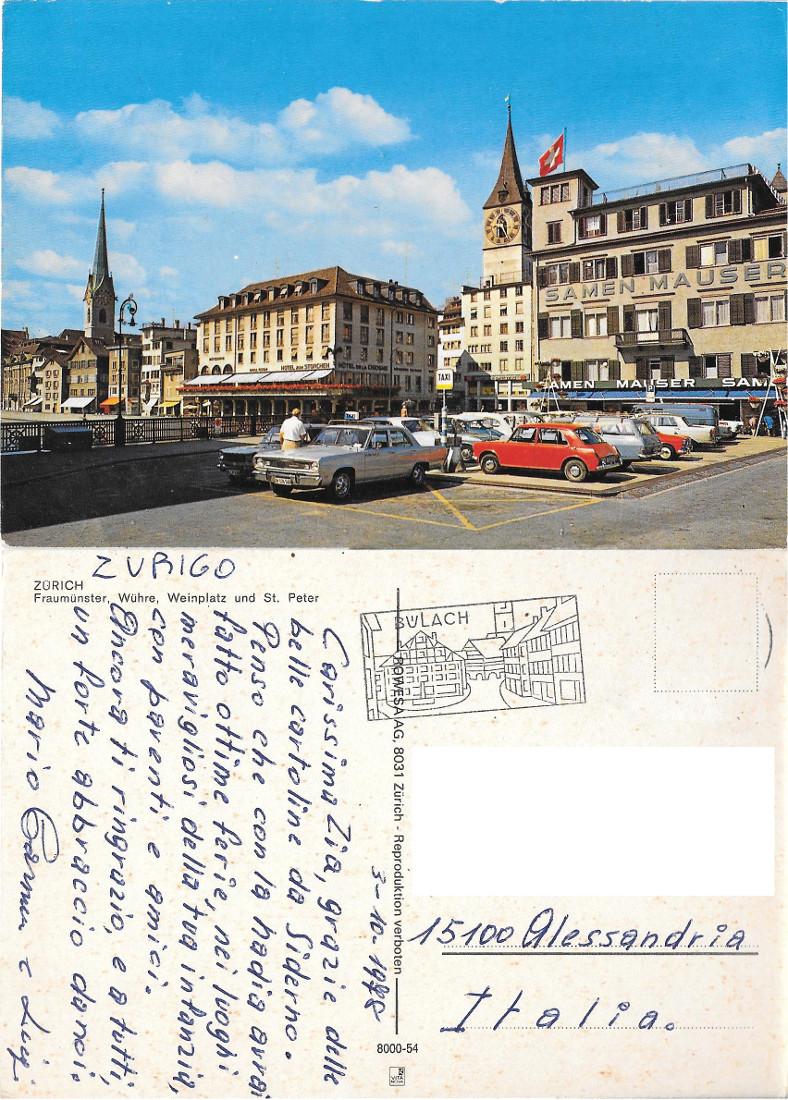 HOTEL ZUM STORCHEN
TAXI
SAMEN MAUSER
SAMEN MAUSER SAM
ZURIGO
ZÜRICH
Fraumünster, Wühre, Weinplatz und St. Peter
Carissima Zia, grazie delle
belle cartoline da Siderno.
Penso che con la Nadia avrai
fatto ottime ferie, nei luoghi
meravigliosi della tua infanzia,
con parenti e amici.
Ancora ti ringrazio, e a tutti,
un forte abbraccio da noi.
Mario Carmen e Luigi
BÜLACH
ROWESA AG, 8031 Zürich - Reproduktion verboten
15100 Alessandria
Italia.
8000-54